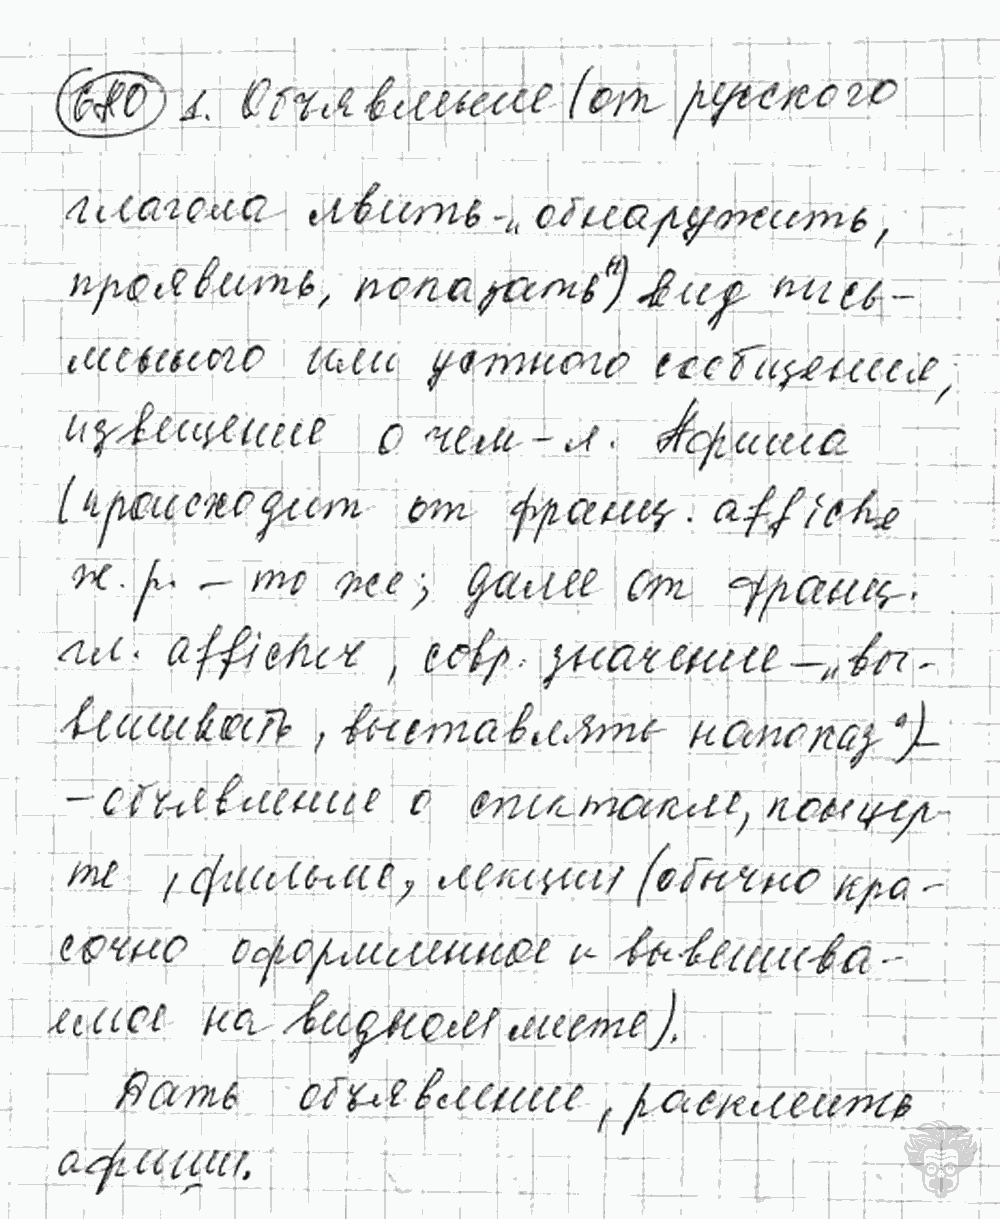 680 1. Объявление (от русского
глагола явить - „обнаружить,
проявить, показать") вид пись-
менного или устного сообщения,
извещение о чем-л. Афиша
(происходит от франц. affiche
ж. р. – то же; далее от франц.
гл. afficher, совр. значение – „вы-
вешивать, выставлять напоказ") –
– объявление о спектакле, концер-
те, фильме, лекции (обычно кра-
сочно оформленное и вывешива-
емое на видном месте).
Дать объявление, расклеить
афиши.